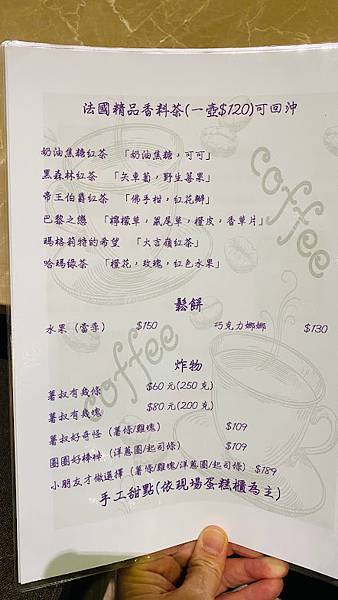 法國精品香料茶(一壺$120)可回沖
奶油焦糖紅茶 「奶油焦糖,可可」
黑森林紅茶 「矢車菊,野生莓果」
帝王伯爵紅茶 「佛手柑,紅花瓣」
巴黎之戀 「檸檬草,鼠尾草,橙皮,香草片」
瑪格莉特的希望 「大吉嶺紅茶」
哈瑪綠茶 「橙花,玫瑰,紅色水果」
鬆餅
水果(當季) $150 巧克力娜娜 $130
炸物
薯叔有幾條 $60元(250克)
薯叔有幾塊 $80元(200克)
薯叔好奇怪(薯條/雞塊) $109
圈圈好棒棒(洋蔥圈/起司條) $109
小朋友才做選擇(薯條/雞塊/洋蔥圈/起司條) $189
手工甜點(依現場蛋糕櫃為主)
coffee
coffee